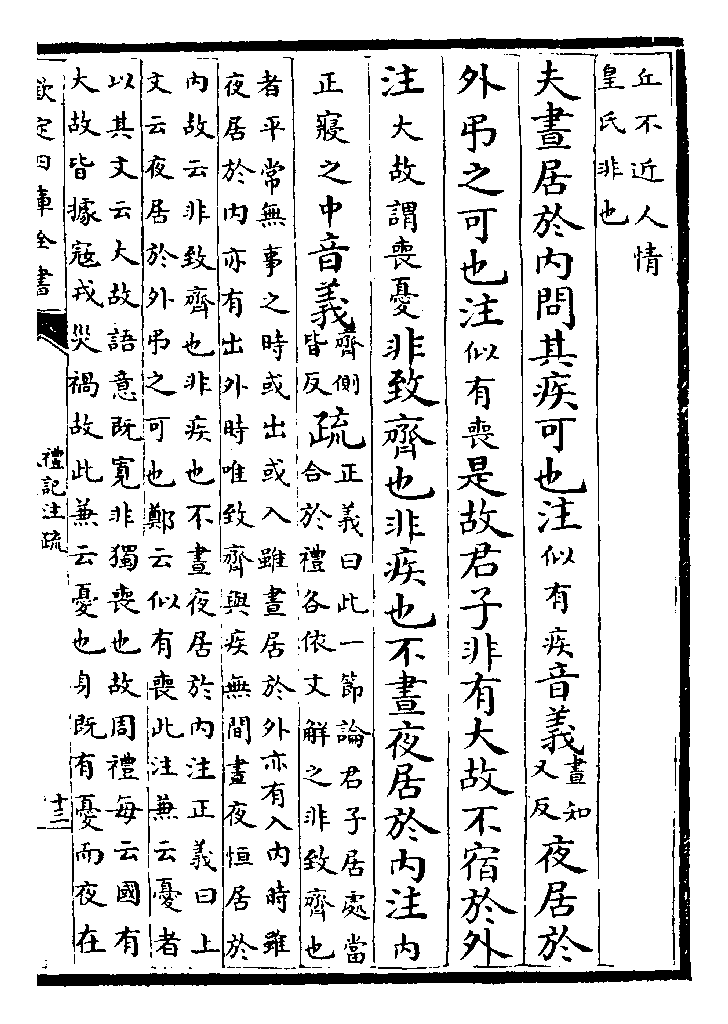 丘不近人情
皇氏非也
夫晝居於内問其疾可也注似有疾音義晝知又反夜居於
外弔之可也注似有喪是故君子非有大故不宿於外
注大故謂喪憂非致齊也非疾也不晝夜居於内注内
正寢之中音義齊側皆反疏正義曰此一節論君子居處當合於禮各依文解之非致齊也
者平常無事之時或出或入雖晝居於外亦有入内時雖
夜居於内亦有出外時唯致齊與疾無間晝夜恒居於
内故云非致齊也非疾也不晝夜居於内注正義曰上
文云夜居於外弔之可也鄭云似有喪此注兼云憂者
以其文云大故語意既寛非獨喪也故周禮每云國有
大故皆據寇戎災禍故此兼云憂也身既有憂而夜在
欽定四庫全書
禮記注疏
十三